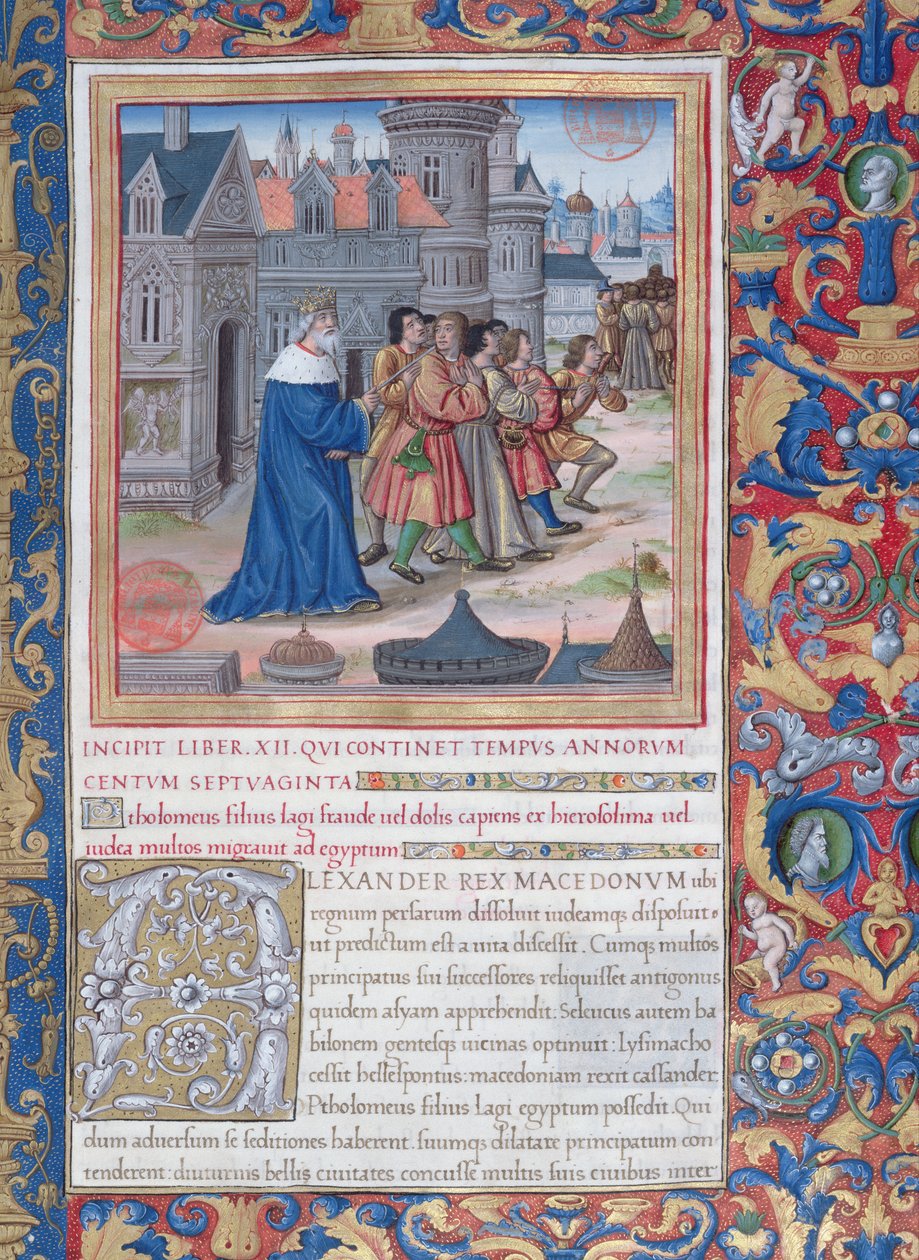 INCIPIT LIBER. XII. QVI CONTINET TEMPVS ANNORVM
CENTVM SEPTVAGINTA
Ptholomeus filius lagi fraude uel dolis capiens ex hierosolima uel
iudea multos migrauit ad egyptum
ALEXANDER REX MACEDONVM ubi
regnum persarum dissoluit iudeamq; disposuit
ut predictum est a uita discessit. Cumq; multos
principatus sui successores reliquisset antigonus
quidem asyam apprehendit: Seleucus autem ba
bilonem gentesq; uicinas optinuit: Lysimacho
cessit hellespontus: macedoniam rexit cassander
Ptholomeus filius lagi egyptum possedit. Qui
dum aduersum se seditiones haberent. suumq; dilatare principatum con
tenderent: diuturnis bellis ciuitates concusse multis suis ciuibus inter